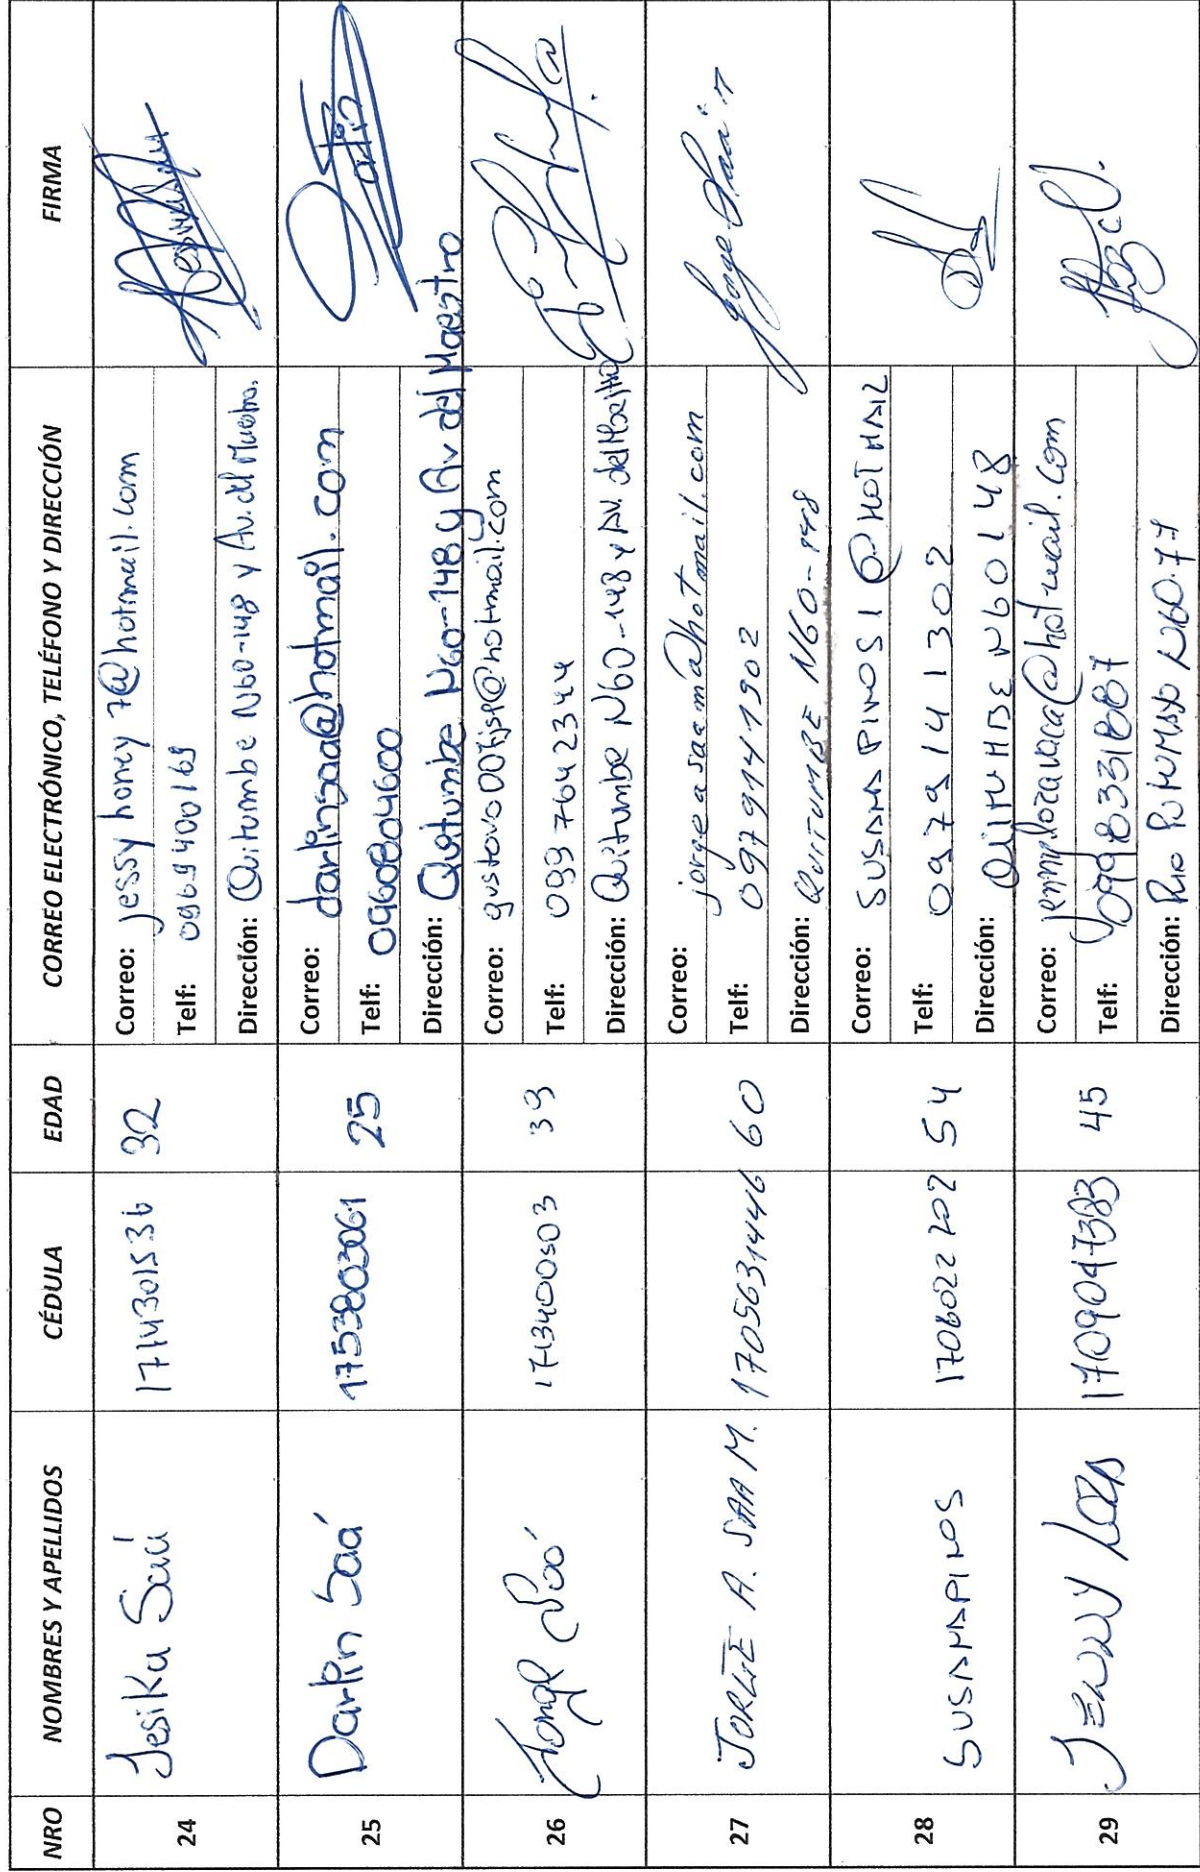 NRO NOMBRES Y APELLIDOS CÉDULA EDAD CORREO ELECTRÓNICO, TELÉFONO Y DIRECCIÓN FIRMA
24 Jesika Saá 1714301536 32
Correo: jessyhoney7@hotmail.com
Telf: 0969400169
Dirección: Quitumbe N60-148 y Av. del Maestro.
25 Darlin Saá 1753803061 25
Correo: darlinsaa@hotmail.com
Telf: 0960804600
Dirección: Quitumbe N60-148 y Av del Maestro
26 Jorge Saá 1713400503 39
Correo: gustavo007jsp@hotmail.com
Telf: 0997642344
Dirección: Quitumbe N60-148 y Av. del Maestro
27 JORGE A. SAA M. 1705631446 60
Correo: jorgeasaam@hotmail.com
Telf: 0979141902
Dirección: QUITUMBE N60-148
Jorge Saa
28 SUSANA PINOS 1706022702 54
Correo: SUSANAPINOS1@HOTMAIL
Telf: 0979141302
Dirección: QUITUMBE N60148
29 JENNY LOZA 1709047383 45
Correo: jennylozavaca@hotmail.com
Telf: 0998331887
Dirección: Rio PUTUMAYO N60.77